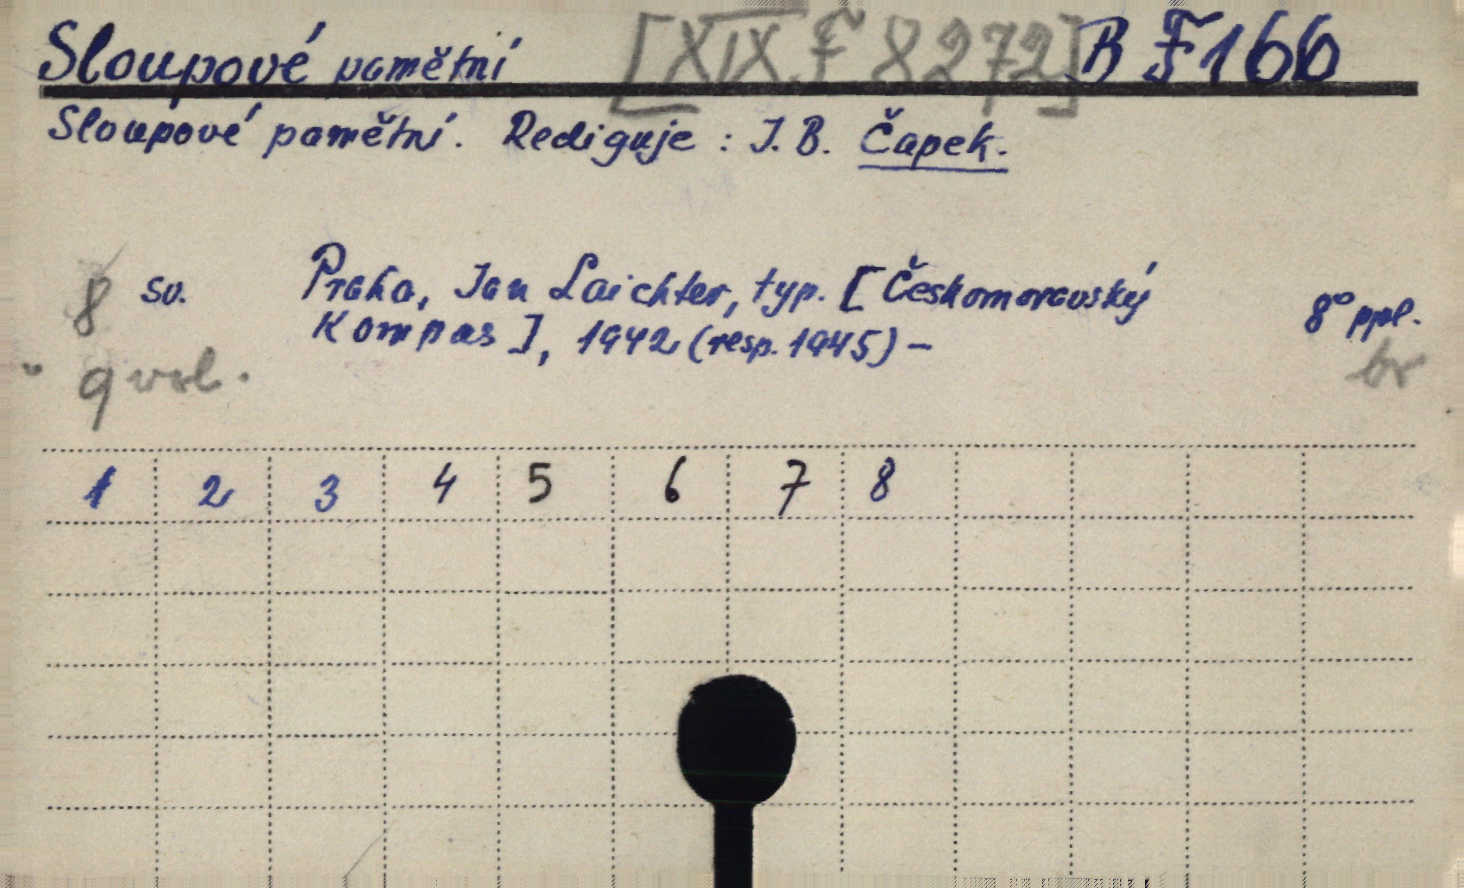 Sloupové pamětní [XIX F 8272] B F 166
Sloupové pamětní. Rediguje: J. B. Čapek.
8 sv. Praha, Jan Laichter, typ. [Českomoravský
Kompas], 1942 (resp. 1945) – 8° ppl.
9 vol. br
1 2 3 4 5 6 7 8